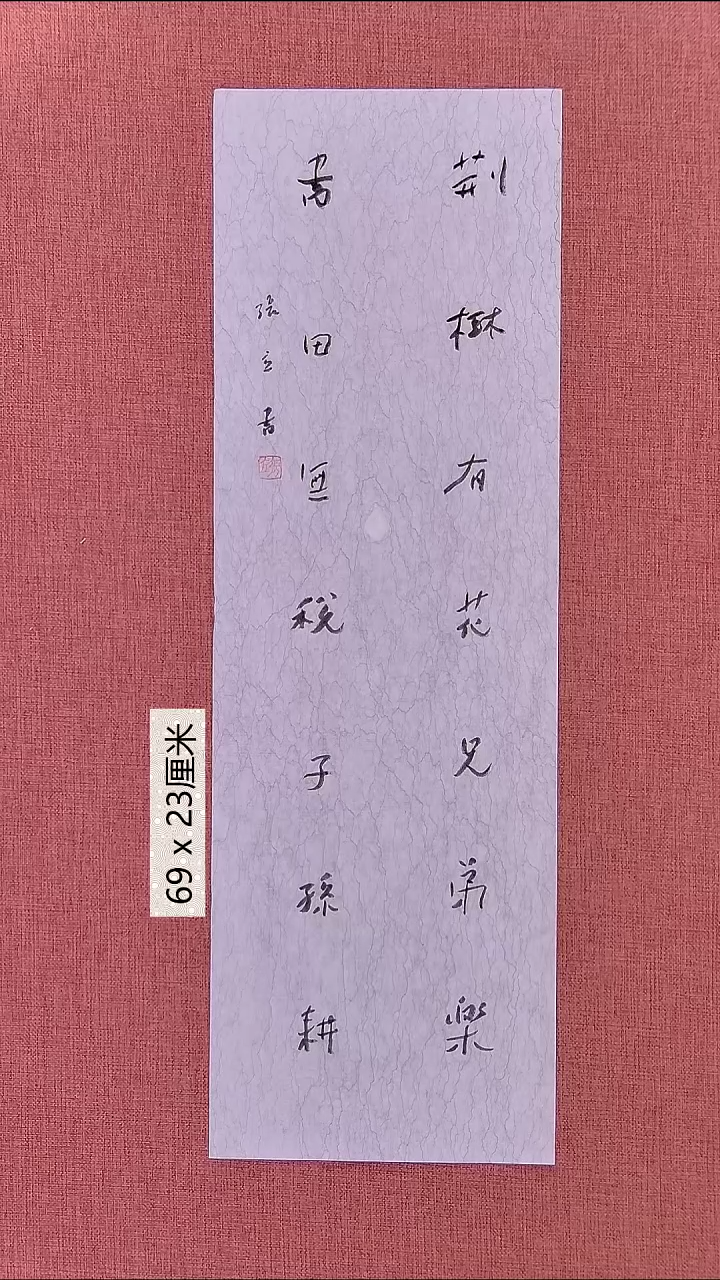 荆樹有花兄弟樂
書田無稅子孫耕
張立書
69 x 23厘米